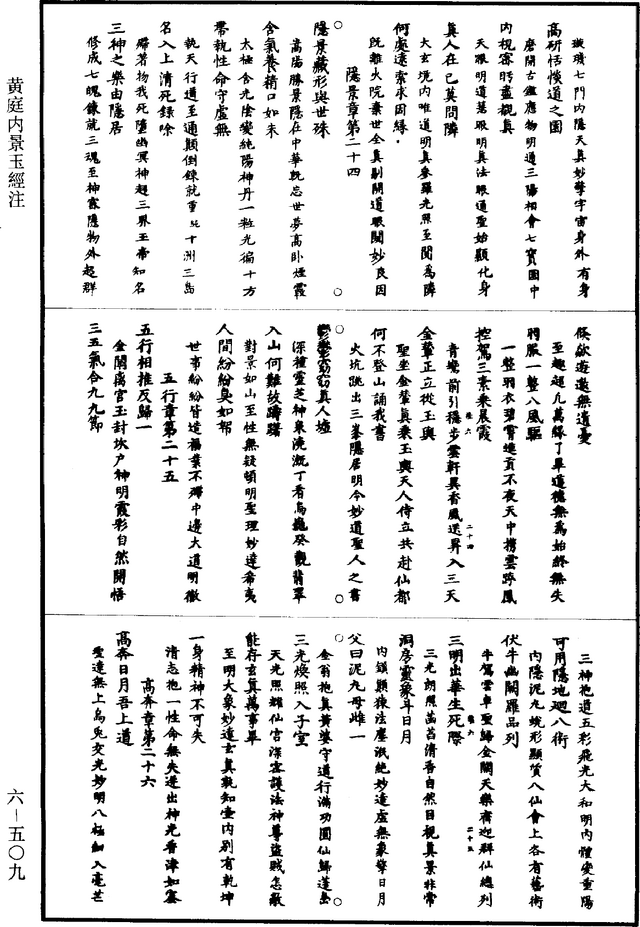 黃庭內景玉經注
璇璣七門內隱天真妙擎宇宙身外有身
高研恬憺道之園
磨開古鑑應物明道三陽相會七寶園中
內視密眄盡覩真
天眼明道慧眼明真法眼通聖始顯化身
真人在己莫問隣
大玄境內唯道明真參羅光照至聞為隣
何處遠索求因緣
既離火院棄世全真剔開道眼開妙良因
隱景章第二十四
隱景藏形與世殊
嵩陽勝景隱在中華既忘世夢高卧煙霞
含氣養精口如朱
太極含光陰變純陽神丹一粒光徧十方
帶執性命守虛無
執天行道至通顛倒鍊就重玄十洲三島
名入上清死錄除
歸著物我死墮幽冥神超三界玉帝知名
三神之樂由隱居
修成七魄鍊就三魂至神靈隱物外超群
倏欻遊遨無遺憂
至趣超凡萬緣了畢道德無為始終無失
羽服一整八風驅
一整羽衣碧霄進貢不夜天中携雲踤鳳
控駕三素乘晨霞
青鸞前引穩步雲軒異香風送昇入三天
金輦正立從玉輿
聖坐金輦真乘玉輿天人侍立共赴仙都
何不登山誦我書
火坑跳出三峯隱居明今妙道聖人之書
鬱鬱窈窈真人墟
深種靈芝神泉澆溉丁看烏龜癸觀翡翠
入山何難故躊躇
對景如山至性無疑頓明聖理妙達希夷
人間紛紛臭如帤
世事紛紛皆造福業不殢中邊大道明徹
五行章第二十五
五行相推反歸一
金關离宮玉封坎户神明霞彩自然開悟
三五氣合九九節
三神抱道五彩飛光大和明內體變重陽
可用隱地迴八術
內隱泥丸蛻形顯質八仙會上各有藝術
伏牛幽闕羅品列
牛駕雲車聖歸金闕天樂齊迎群仙總列
三明出華生死際
三光朗照菡萏清香自然目視真景非常
洞房靈象斗日月
內鎮顛猿法塵泯絕妙達虛無象擎日月
父曰泥丸母雌一
金翁抱真黃婆守道行滿功圓仙歸蓬島
三光煥照入子室
天光照耀仙宮深密護法神尊盜賊怎敢
能存玄真萬事畢
至明大象妙達玄真孰知壷內別有乾坤
一身精神不可失
清志抱一性命無失迸出神光香津如蜜
高奔章第二十六
高奔日月吾上道
聖達無上烏兎交光妙明八極細入毫芒
六—五〇九